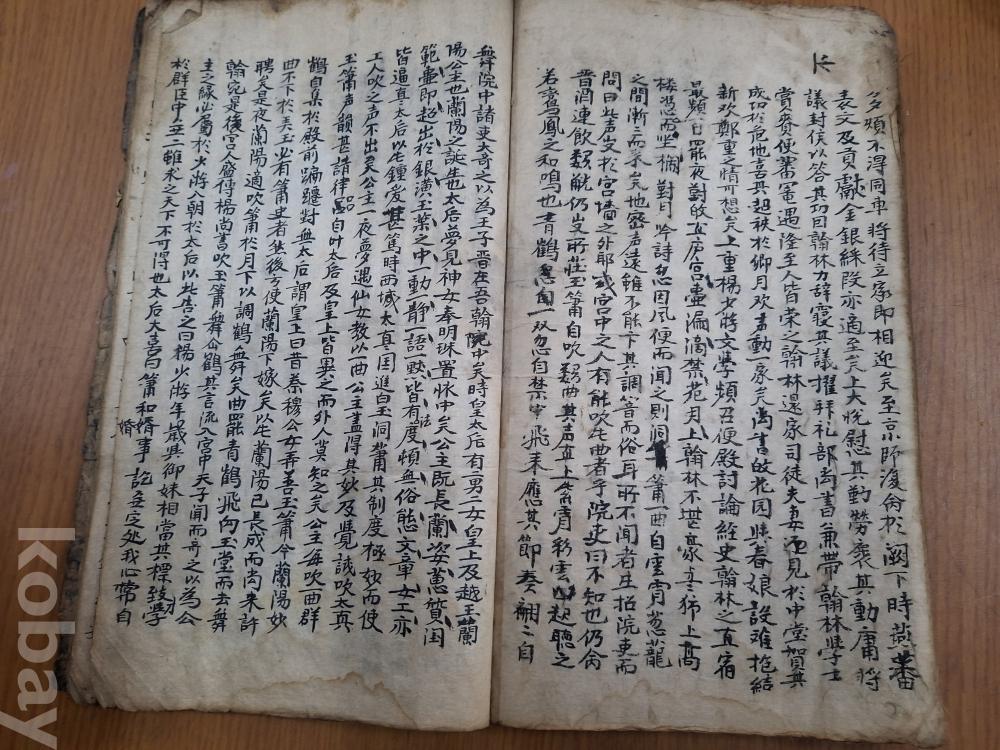 多煩不得同車將待立家即相迎矣至京師復命於闕下時燕蕃
表文及貢獻金銀綵段亦適至矣上大悅慰其勤勞褒其勳庸將
議封侯以答其功翰林力辭寢其議擢拜礼部尙書兼帶翰林學士
賞賚便蕃寵遇隆至人皆榮之翰林還家司徒夫妻迎見於中堂賀其
成功於危地喜其超秩於卿月欢声動一家矣尙書敀花园與春娘設難抱結
新欢鄭重之情可想矣上重楊少游文學頻召便殿討論經史翰林之直宿
最頻一日罷夜對敀直庐宮壺漏滴禁花月上翰林不堪豪興獨上高
楼憑而坐欄對月吟詩忽因風便而闻之則洞簫一曲自雲霄葱蘢
之間漸二而來矣地密声遠雖不能卞其調笛而俗耳所不聞者生招院吏而
問曰此声出於宮墻之外耶或宮中之人有能吹此曲者乎院吏曰不知也仍命
晋酒連飮数觥仍出所莊玉簫自吹数曲其声直上紫霄彩雲四起聽之
若鸞鳳之和鳴也青鶴一双忽自禁中飛來應其節奏翩二自
舞院中諸吏大奇之以為王子晋在吾翰院中矣時皇太后有二男一女皇上及越王蘭
陽公主也蘭陽之誕生也太后夢見神女奉明珠置懷中矣公主旣長蘭姿蕙質閨
範壼即超出於銀潢玉葉之中一動一静一語一默皆有法度頓無俗態文章女工亦
皆逼真太后以此鍾爱甚篤時西域太真國進白玉洞簫其制度極妙而使
工人吹之声不出矣公主一夜夢遇仙女教以一曲公主盡得其妙及覺試吹太真
玉簫声韻甚諧律呂自叶太后及皇上皆異之而外人莫知之矣公主每吹一曲群
鶴自集於殿前蹁躚對舞太后謂皇上曰昔秦穆公女弄玉善玉簫今蘭陽妙
曲不下於弄玉必有簫史者然後方使蘭陽下嫁矣以此蘭陽已長成而尙未許
聘矣是夜蘭陽適吹簫於月下以調鶴舞矣曲罷青鶴飛向玉堂而去舞
翰苑是後宮人盛傳楊尙書吹玉簫舞仙鶴其言流入宮中天子闻而奇之以為公
主之緣必屬於少游入朝於太后以此告之曰楊少游年歲與御妹相當其標致才學
於群臣中無二雖求之天下不可得也太后大喜曰簫和婚事訖無定處我心常自
婚
kobay